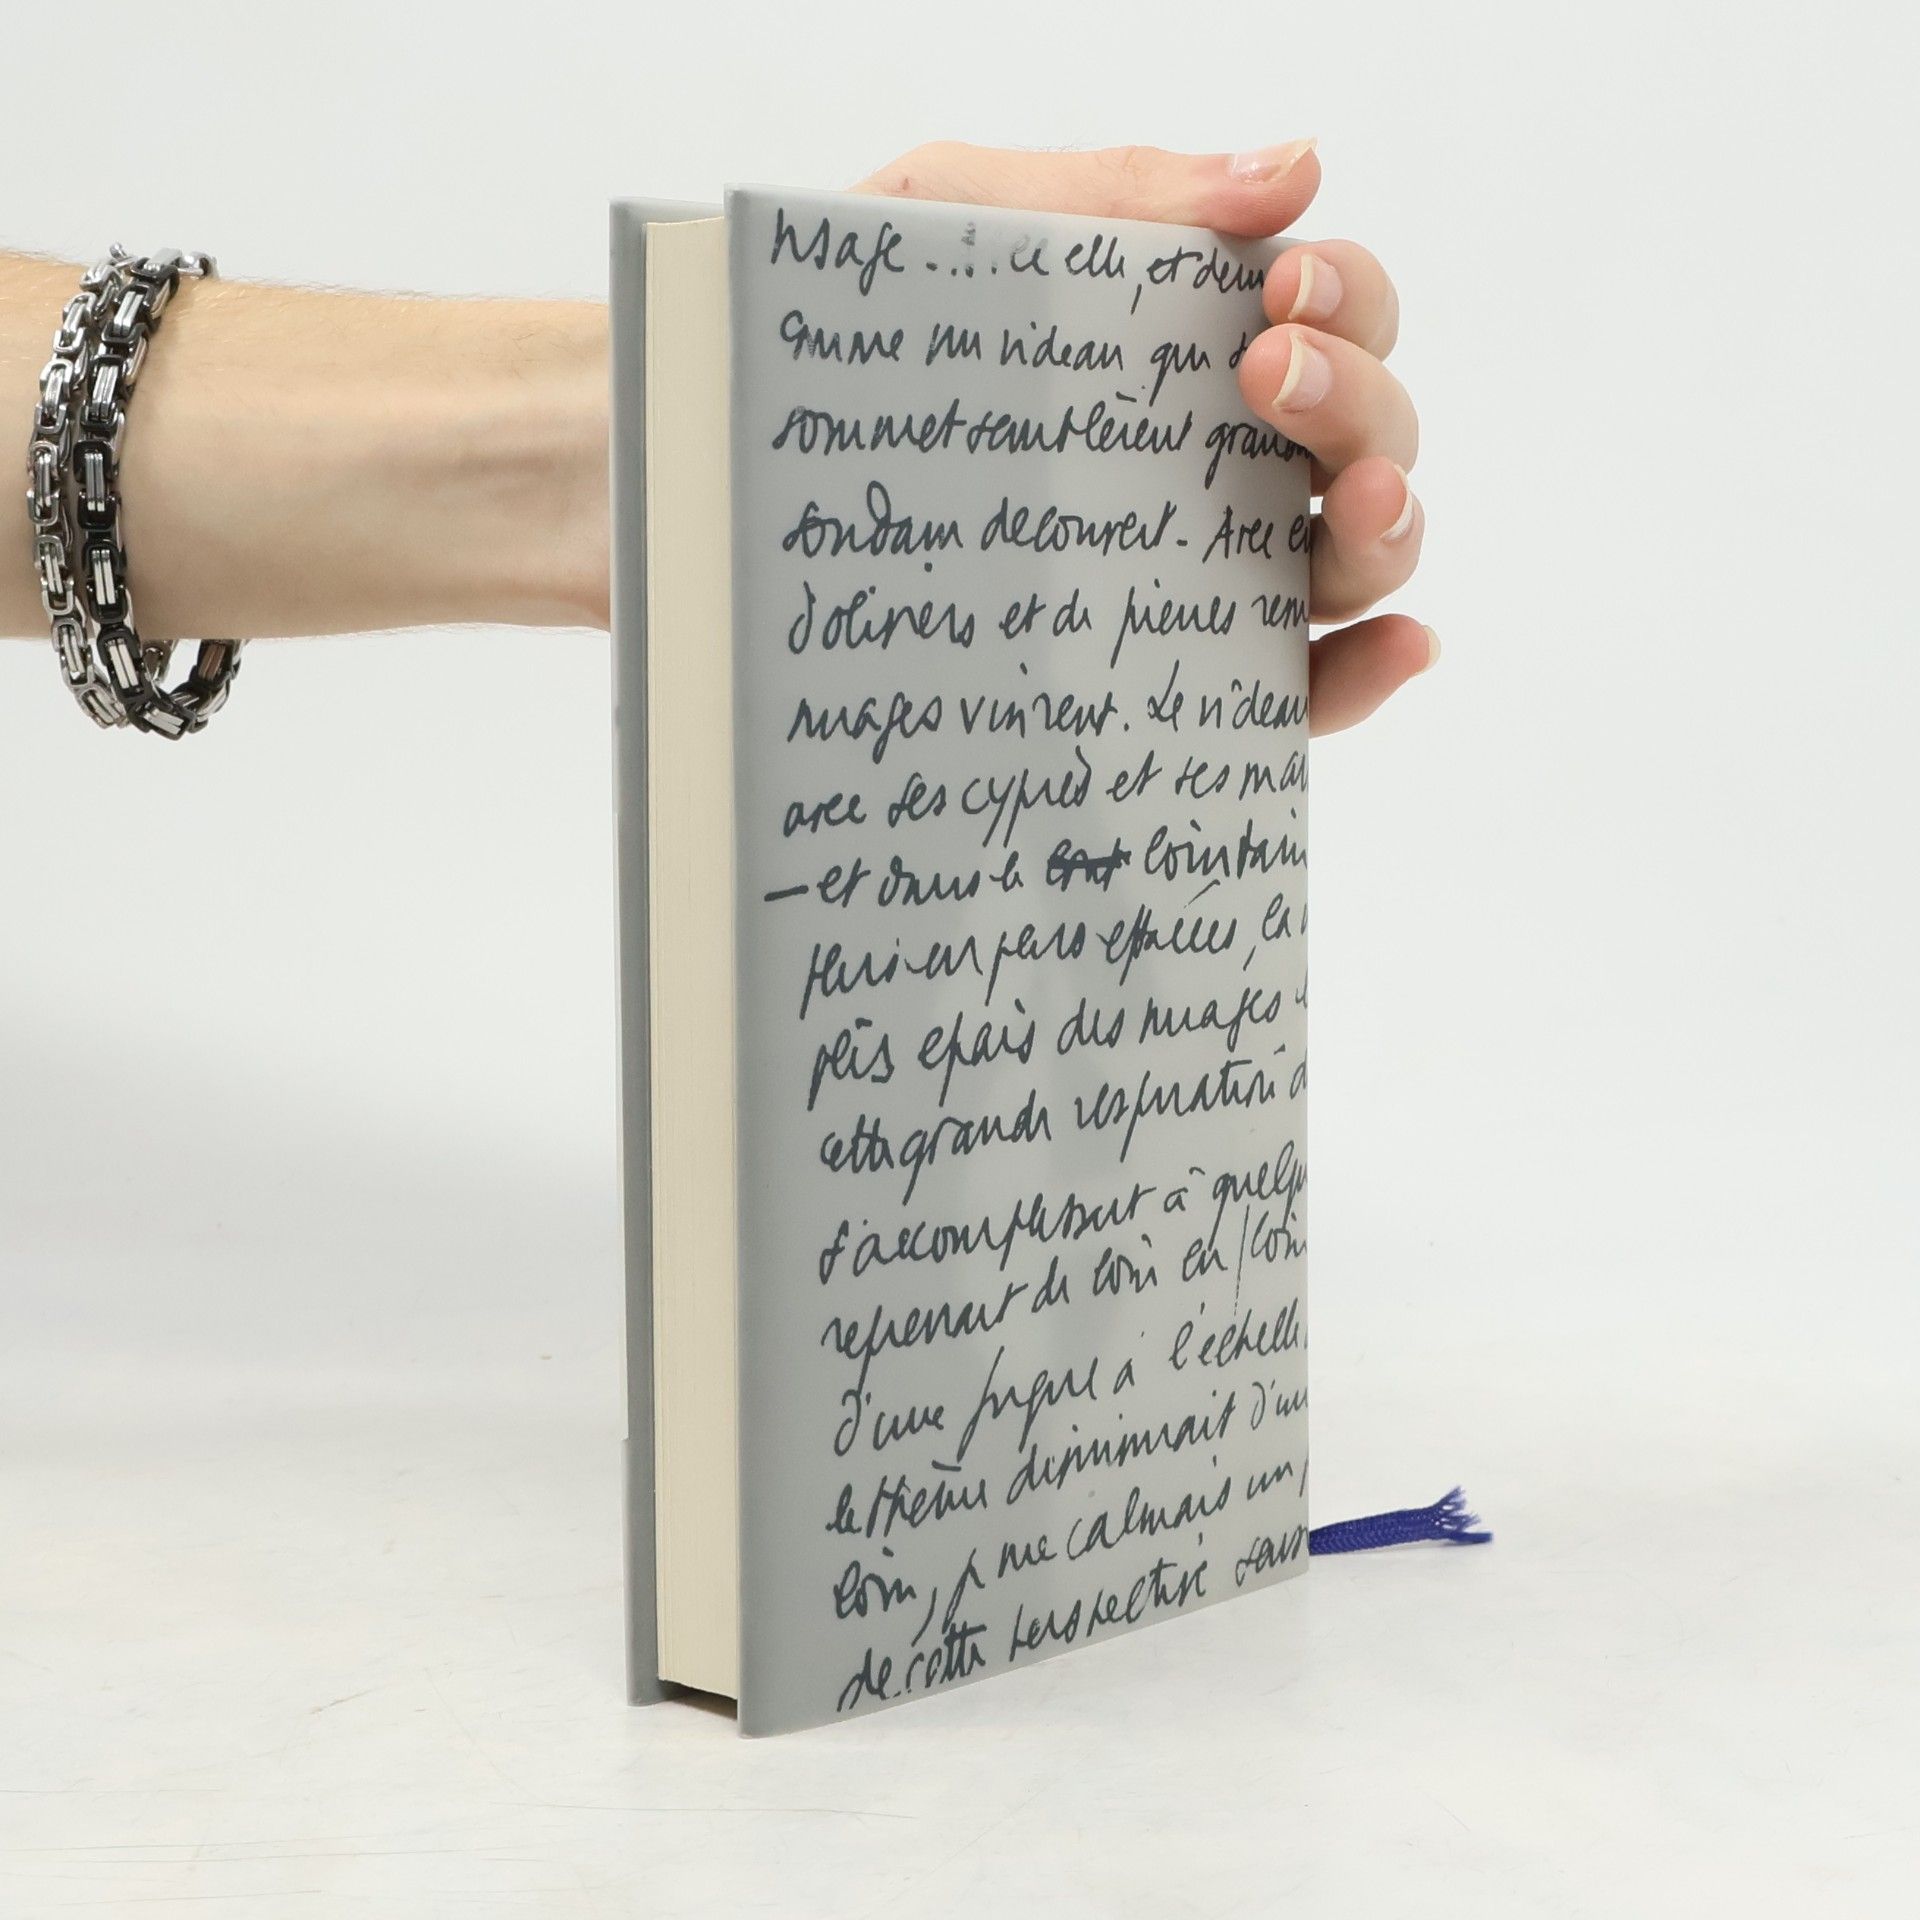 elle, et
comme un rideau qui
sommet semblèrent
soudain decouvert. Avec
d'oliviers et de pierres
nuages vinrent. Le rideau
avec ses cyprès et ses
— et dans le lointain
effacées, la
plis epais des nuages
cette grande respiration
s'accomplissant à
reprenait de loin en loin
d'une fugue à l'échelle
le thème diminuait d'un
loin, je me calmais un
de cette perspective sans